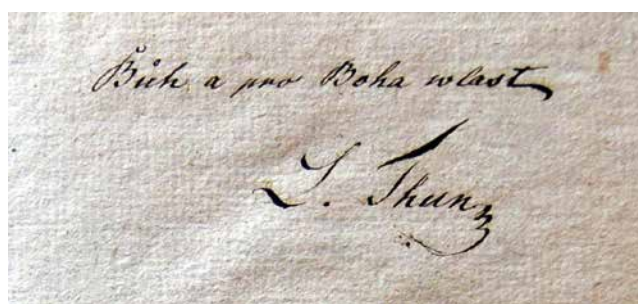 Bůh a pro Boha wlast
L. Thun